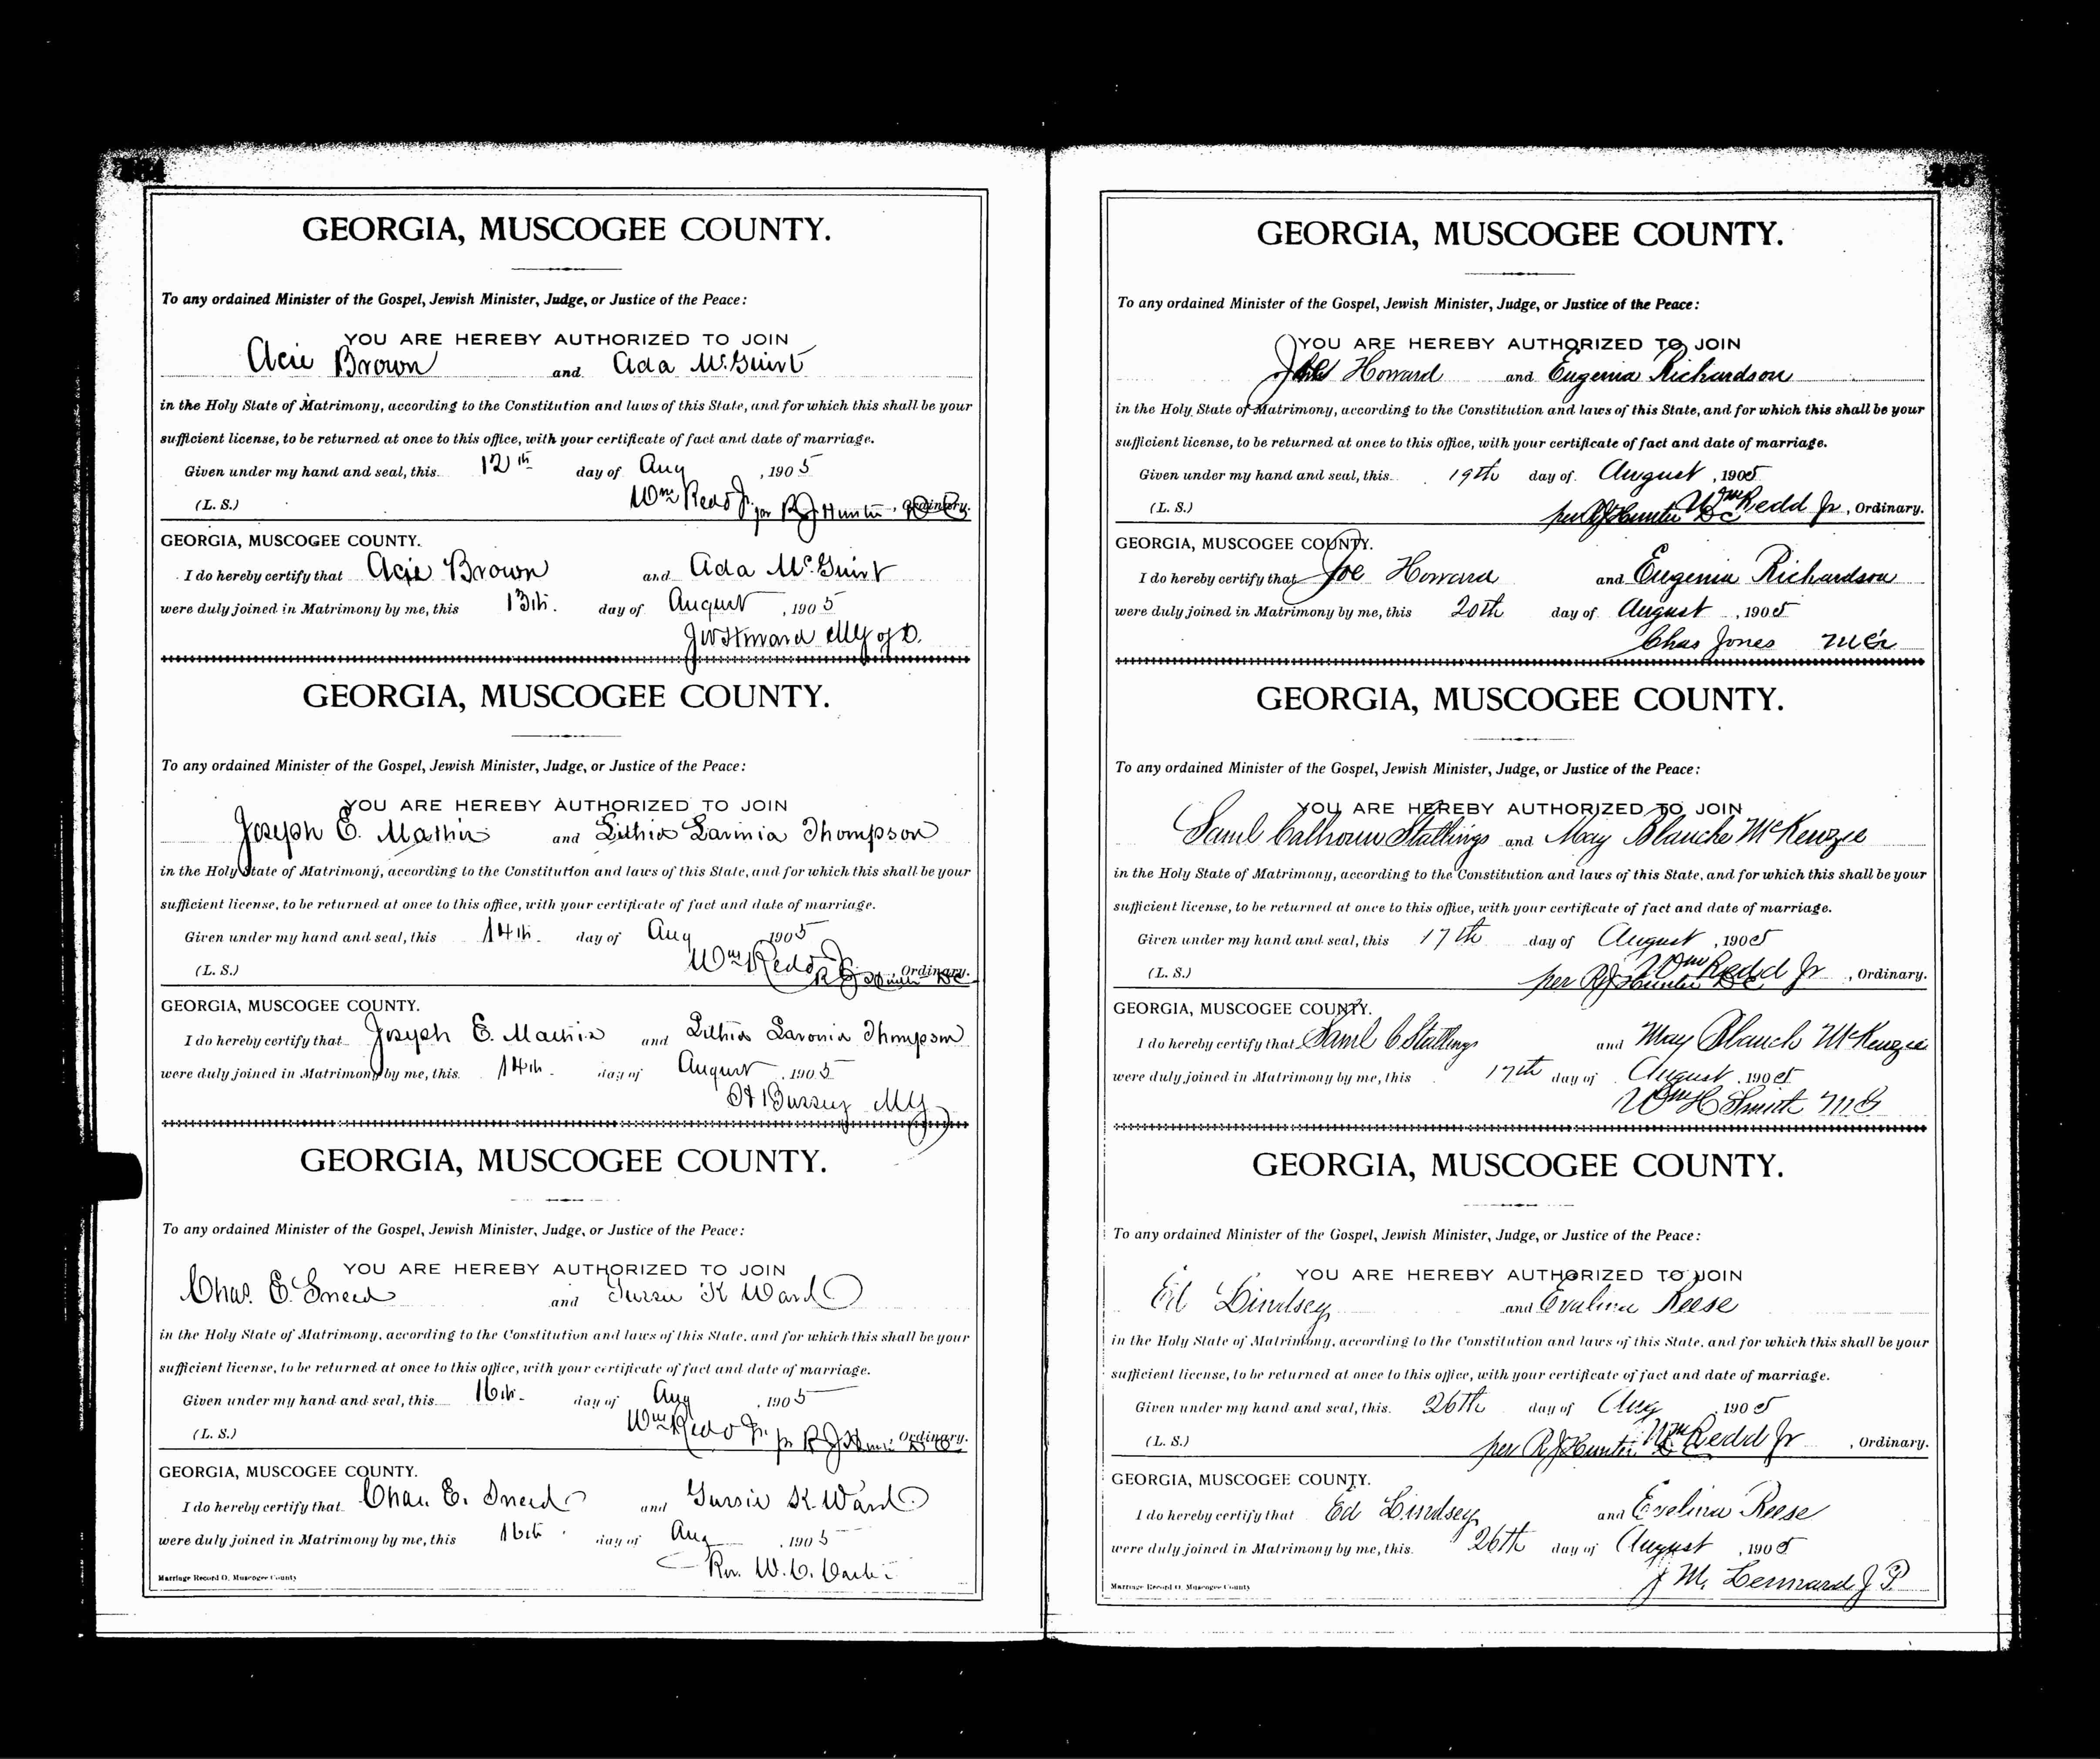 GEORGIA, MUSCOGEE COUNTY.
To any ordained Minister of the Gospel, Jewish Minister, Judge, or Justice of the Peace:
YOU ARE HEREBY AUTHORIZED TO JOIN
Acie Brown and Ada McGuirt
in the Holy State of Matrimony, according to the Constitution and laws of this State, and for which this shall be your
sufficient license, to be returned at once to this office, with your certificate of fact and date of marriage.
Given under my hand and seal, this 12th day of Aug, 1905
(L. S.) Wm Redd Jr. per RJ Hunter, DC Ordinary.
GEORGIA, MUSCOGEE COUNTY.
I do hereby certify that Acie Brown and Ada McGuirt
were duly joined in Matrimony by me, this 13th. day of August, 1905
JW Howard M G of D.
GEORGIA, MUSCOGEE COUNTY.
To any ordained Minister of the Gospel, Jewish Minister, Judge, or Justice of the Peace:
YOU ARE HEREBY AUTHORIZED TO JOIN
Joseph E. Mathis and Lithia Lavinia Thompson
in the Holy State of Matrimony, according to the Constitution and laws of this State, and for which this shall be your
sufficient license, to be returned at once to this office, with your certificate of fact and date of marriage.
Given under my hand and seal, this 14th. day of Aug 1905
(L. S.) Wm Redd Jr RJ Hunter DC, Ordinary.
GEORGIA, MUSCOGEE COUNTY.
I do hereby certify that Joseph E. Mathis and Lithia Lavonia Thompson
were duly joined in Matrimony by me, this 14th. day of August, 1905
Bussey MG
GEORGIA, MUSCOGEE COUNTY.
To any ordained Minister of the Gospel, Jewish Minister, Judge, or Justice of the Peace:
YOU ARE HEREBY AUTHORIZED TO JOIN
Chas. E. Sneed and Tursie K Ward
in the Holy State of Matrimony, according to the Constitution and laws of this State, and for which this shall be your
sufficient license, to be returned at once to this office, with your certificate of fact and date of marriage.
Given under my hand and seal, this 16th. day of Aug, 1905
(L. S.) Wm Redd Jr. pr RJ Hunter DC, Ordinary.
GEORGIA, MUSCOGEE COUNTY.
I do hereby certify that Chas. E. Sneed and K. Ward
were duly joined in Matrimony by me, this 16th. day of Aug, 1905
Rev. W. C.
Marriage Record O, Muscogee County
GEORGIA, MUSCOGEE COUNTY.
To any ordained Minister of the Gospel, Jewish Minister, Judge, or Justice of the Peace:
YOU ARE HEREBY AUTHORIZED TO JOIN
Howard and Eugenia Richardson
in the Holy State of Matrimony, according to the Constitution and laws of this State, and for which this shall be your
sufficient license, to be returned at once to this office, with your certificate of fact and date of marriage.
Given under my hand and seal, this 19th day of August, 1905
(L. S.) per RJ Hunter DC Wm Redd Jr, Ordinary.
GEORGIA, MUSCOGEE COUNTY.
I do hereby certify that Joe Howard and Eugenia Richardson
were duly joined in Matrimony by me, this 20th day of August, 1905
Chas Jones
GEORGIA, MUSCOGEE COUNTY.
To any ordained Minister of the Gospel, Jewish Minister, Judge, or Justice of the Peace:
YOU ARE HEREBY AUTHORIZED TO JOIN
Saml Calhoun Stallings and May Blanche McKenzie
in the Holy State of Matrimony, according to the Constitution and laws of this State, and for which this shall be your
sufficient license, to be returned at once to this office, with your certificate of fact and date of marriage.
Given under my hand and seal, this 17th day of August, 1905
(L. S.) per RJ Hunter DC Wm Redd Jr, Ordinary.
GEORGIA, MUSCOGEE COUNTY.
I do hereby certify that Saml C Stallings and May Blanch McKenzie
were duly joined in Matrimony by me, this 17th day of August, 1905
Wm H Smith MG
GEORGIA, MUSCOGEE COUNTY.
To any ordained Minister of the Gospel, Jewish Minister, Judge, or Justice of the Peace:
YOU ARE HEREBY AUTHORIZED TO JOIN
Ed Lindsey and Evalina Reese
in the Holy State of Matrimony, according to the Constitution and laws of this State, and for which this shall be your
sufficient license, to be returned at once to this office, with your certificate of fact and date of marriage.
Given under my hand and seal, this. 26th day of Aug, 1905
(L. S.) per RJ Hunter DC Wm Redd Jr, Ordinary.
GEORGIA, MUSCOGEE COUNTY.
I do hereby certify that Ed Lindsey and Evelina Reese
were duly joined in Matrimony by me, this. 26th day of August, 1905
J M. Lennard J P
Marriage Record O, Muscogee County